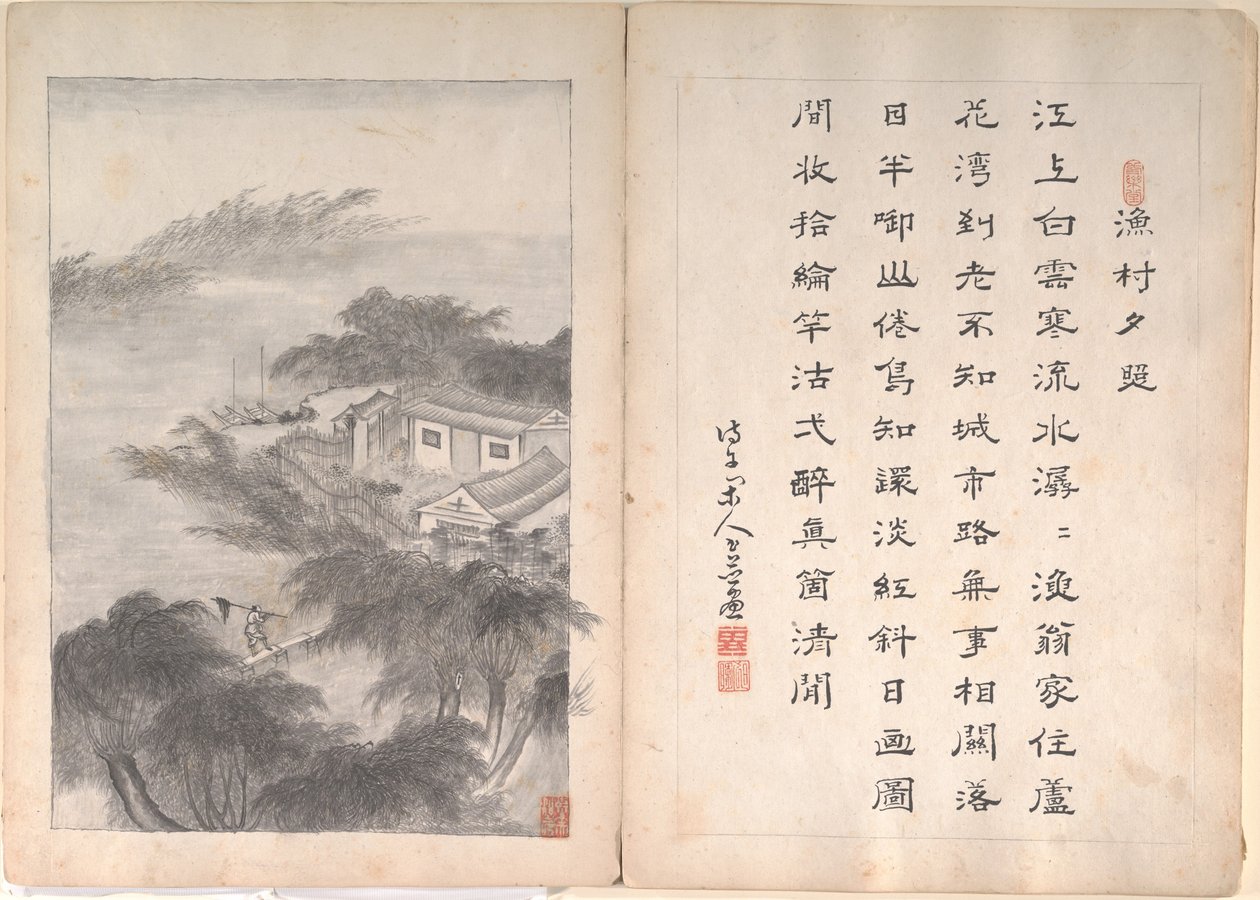 漁村夕照
江上白雲寒流水潺〻漁翁家住蘆
花湾到老不知城市路無事相關落
日半啣山倦鳥知還淡紅斜日画圖
間收拾綸竿沽弌醉眞箇清閒